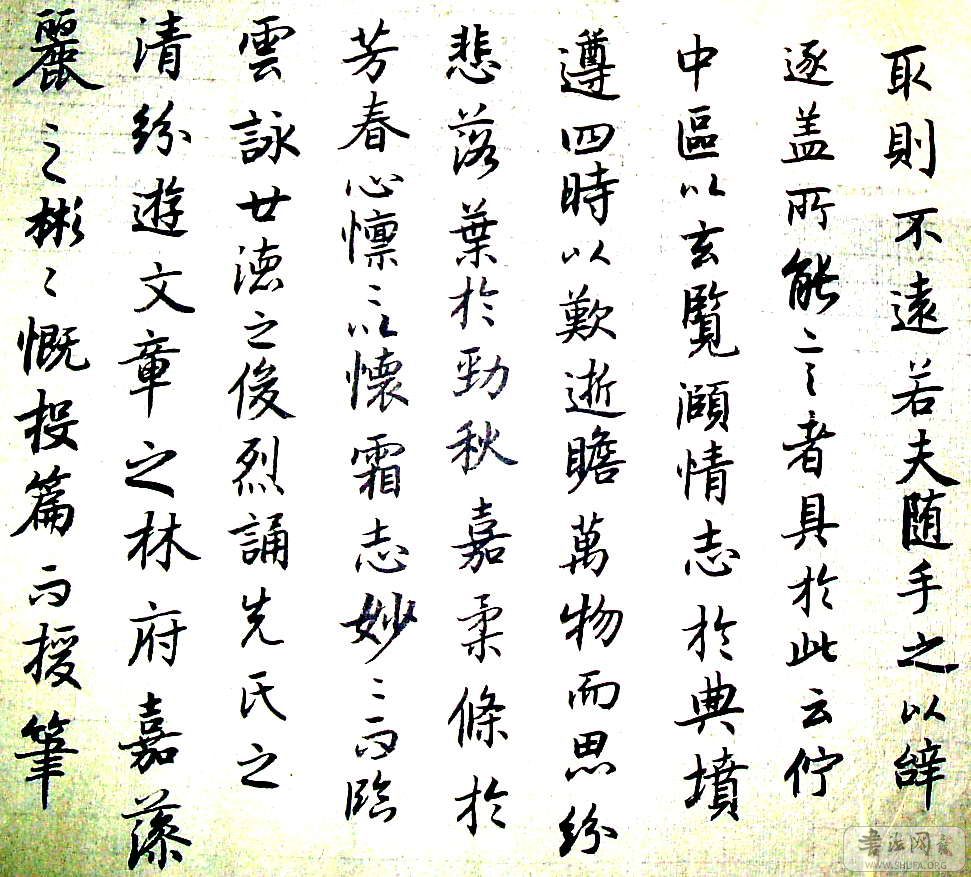 取則不遠若夫随手之以辝
逐盖所能言者具於此云佇
中區以玄覽頤情志於典墳
遵四時以歎逝瞻萬物而思紛
悲落葉於勁秋嘉柔條於
芳春心懍〻以懷霜志妙〻而臨
雲詠廿徳之俊烈誦先氏之
清紛遊文章之林府嘉藻
麗之彬〻慨投篇而援筆
书法网
WWW.SHUFA.ORG